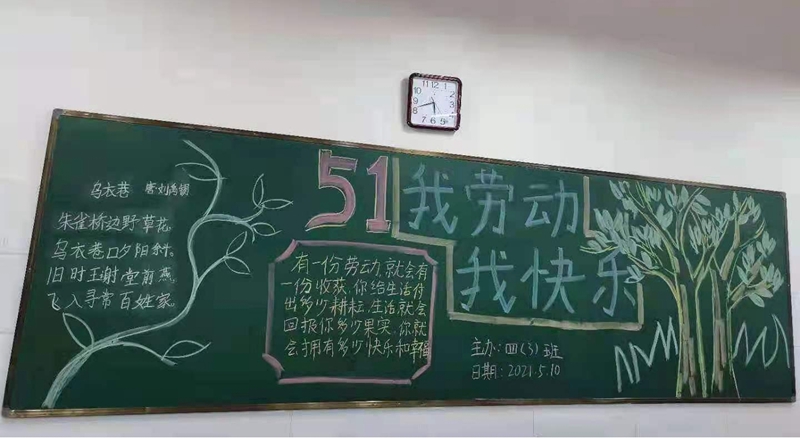 乌衣巷 唐刘禹锡
朱雀桥边野草花
乌衣巷口夕阳斜。
旧时王射堂前燕
飞入寻常百姓家。
51
我劳动
我快乐
有一份劳动,就会有
一份收获,你给生活付
出多少耕耘,生活就会
回报你多少果实,你就
会拥有多少快乐和幸福
主办:四(3)班
日期:2021.5.10